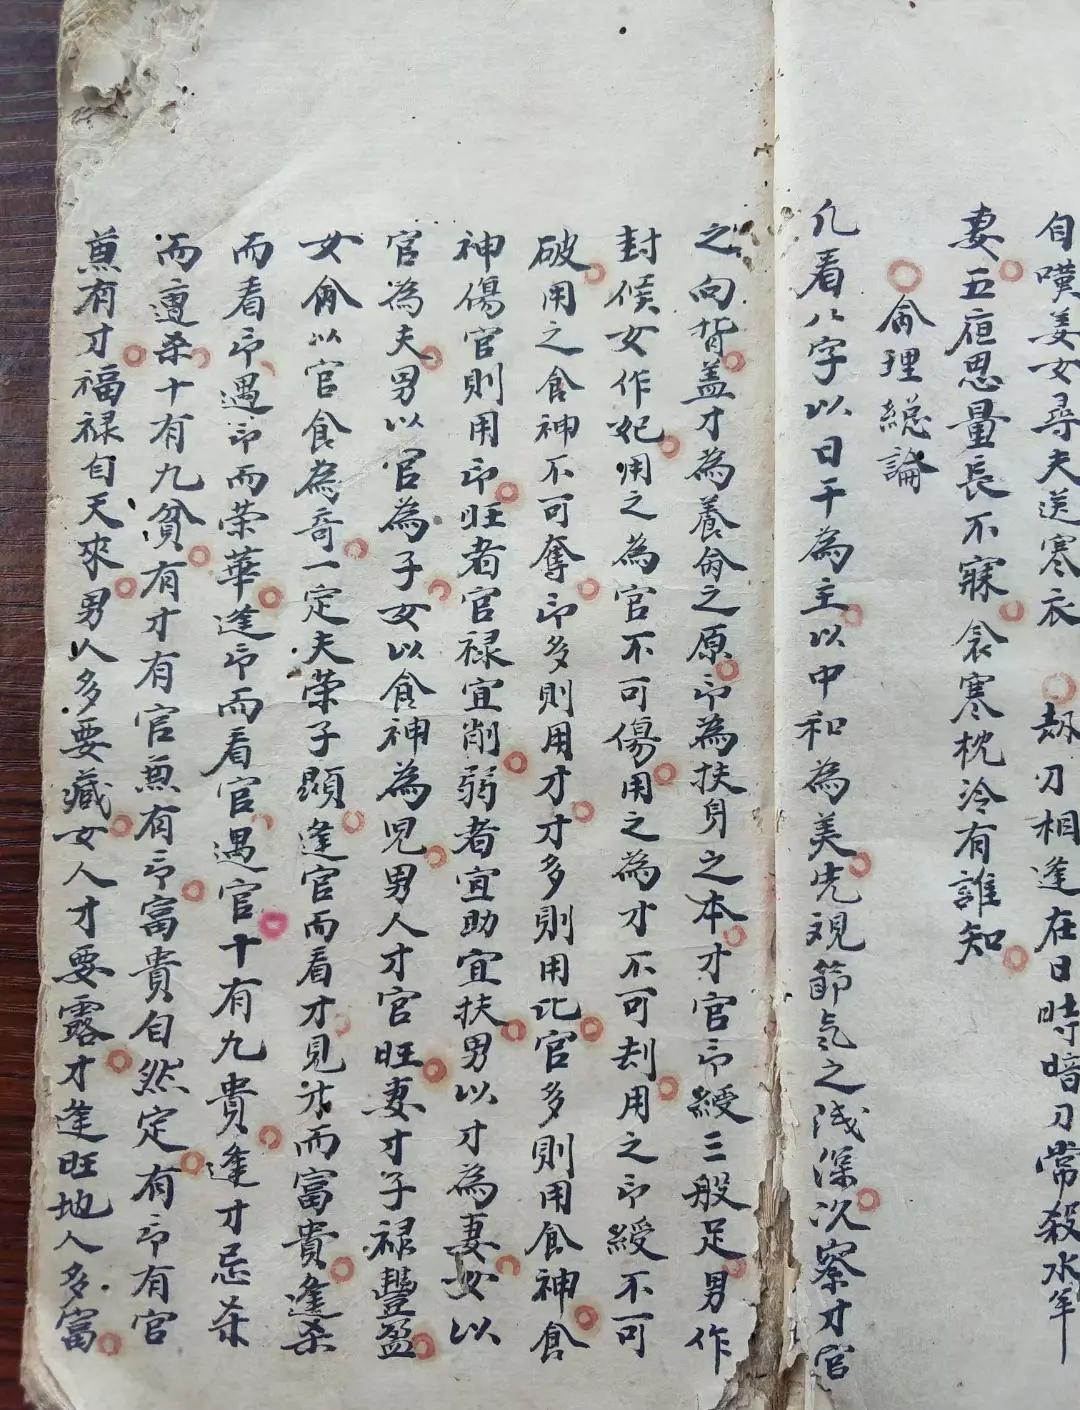 自嘆姜女尋夫送寒衣○刼刀相逢在日時暗刀常殺水年
妻五夜思量長不寐衾寒枕冷有誰知
○命理總論
凡看八字以日干為主以中和為美先观節气之浅深次察才官
之向背盖才為養命之原印為扶身之本才官印綬三般足男作
封侯女作妃用之為官不可傷用之為才不可刦用之印綬不可
破用之食神不可奪印多則用才才多則用比官多則用食神食
神傷官則用印旺者官禄宜削弱者宜助宜扶男以才為妻女以
官為夫男以官為子女以食神為児男人才官旺妻才子禄豐盈
女命以官食為奇一定夫荣子顕逢官而看才見才而富貴逢杀
而看印遇印而荣華逢印而看官遇官十有九貴逢才忌杀
而遭杀十有九貧有才有官兼有印富貴自然定有印有官
兼有才福禄自天來男人多要藏女人才要露才逢旺地人多富